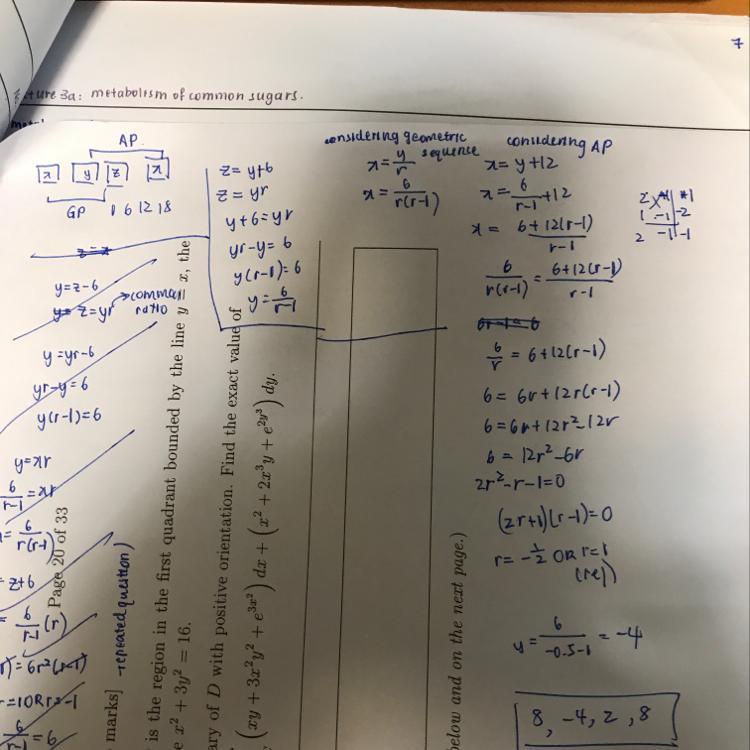 7
ture 3a: metabolism of common sugars.
AP
x y z x
GP 1 6 12 18
z = x
y = z - 6
z = yr → common ratio
y = yr - 6
yr - y = 6
y(r-1) = 6
y = xr
6/(r-1) = xr
6/(r(r-1))
z + 6
6/(r-1) (r)
= 6r²(r-1)
= 1 OR r = -1
6/(r-1) = 6
z = y + 6
z = yr
y + 6 = yr
yr - y = 6
y(r-1) = 6
y = 6/(r-1)
considering geometric sequence
x = y/r
x = 6/(r(r-1))
considering AP
x = y + 12
x = 6/(r-1) + 12
x = (6 + 12(r-1))/(r-1)
6/(r(r-1)) = (6 + 12(r-1))/(r-1)
6/r = 6 + 12(r-1)
6 = 6r + 12r(r-1)
6 = 6r + 12r² - 12r
6 = 12r² - 6r
2r² - r - 1 = 0
(2r+1)(r-1) = 0
r = -1/2 OR r = 1
(rej)
y = 6/(-0.5-1) = -4
8, -4, 2, 8
2 1
1 -1 -2
2 -1 -1
Page 20 of 33
marks] - repeated question)
is the region in the first quadrant bounded by the line y = x, the
e x² + 3y² = 16.
ary of D with positive orientation. Find the exact value of
(xy + 3x²y² + e^{3x²}) dx + (x² + 2x³y + e^{2y³}) dy.
below and on the next page.)